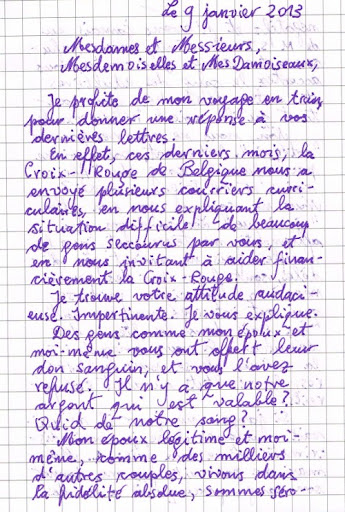 Le 9 janvier 2013
Mesdames et Messieurs,
Mesdemoiselles et Mes Damoiseaux,
Je profite de mon voyage en train,
pour donner une réponse à vos
dernières lettres.
En effet, ces derniers mois, la
Croix-Rouge de Belgique nous a
envoyé plusieurs courriers curri-
culaires, en nous expliquant la
situation difficile de beaucoup
de gens secourus par vous, et
en nous invitant à aider finan-
cièrement la Croix-Rouge.
Je trouve votre attitude audaci-
euse. Impertinente. Je vous explique.
Des gens comme mon époux et
moi-même vous ont offert leur
don sanguin, et vous l'avez
refusé. Il n'y a que notre
argent qui est valable?
Quid de notre sang?
Mon époux légitime et moi-
même, comme des milliers
d'autres couples, vivons dans
la fidélité absolue, sommes séro-